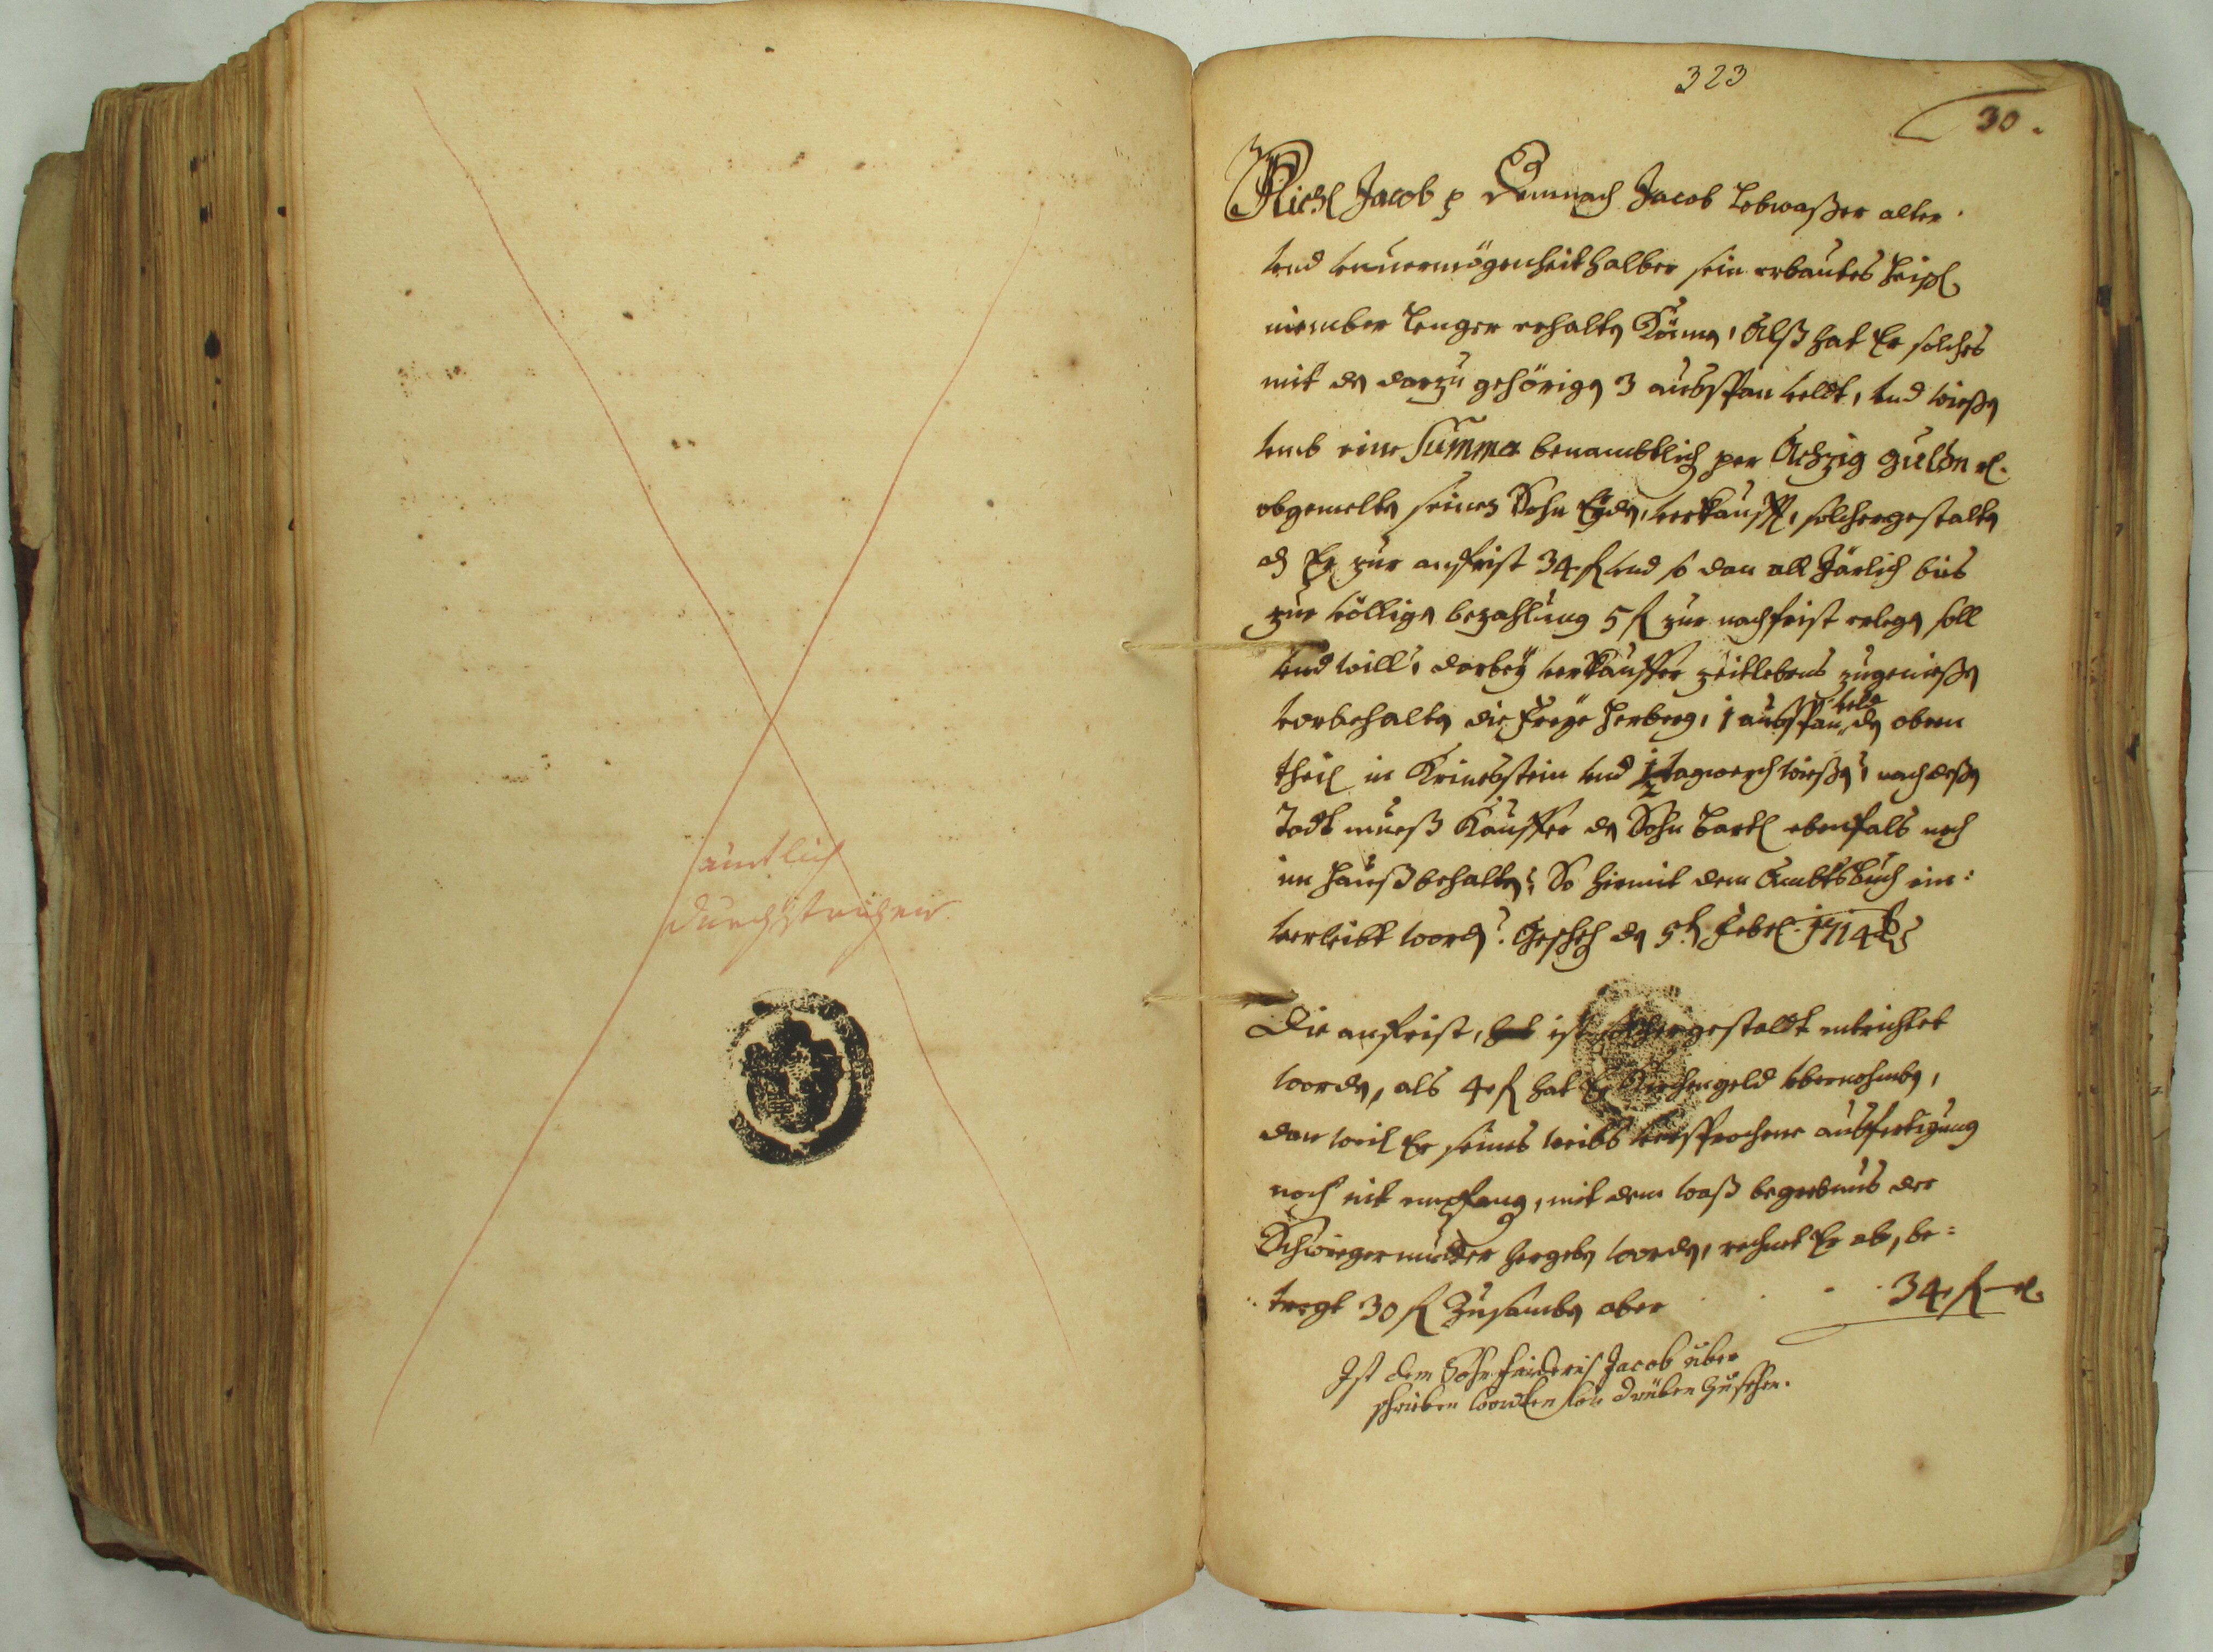 ämtlich
durchstrichen
323
30.
Michl Jacob p Demnach Jacob Lobwaßer alter
und unvermögenheit halber sein erbautes heisl
niember lenger erhalten können, Alß hat Er solches
mit den darzu gehörigen 3 außspan veldt, und wießen
umb eine Summa benambtlich per Achzig gulden rl.
obgemelten seinen Sohn Eyden, verkaufft, solchergestalten
dß Er zur anfrist 34 fl und so dan all Järlich bis
zur völligen bezahlung 5 fl zur nachfrist erlegen soll
und will, darbey verkauffer zeitlebens zugenießen
vorbehalten die freye Herberg, 1 außspan veld den obern
theil in Krinebstein und 1/2 tagwerch wießen, nach deßen
Todt mueß Kauffer den Sohn Bartl ebenfals noch
im hauß behalten; So hiemit dem Ambtsbuch ein:
verleibt worden. Geschehen den 5t Febr. 1714
Die anfrist, hat ist solchergestaldt entrichtet
worden, als 4 fl hat Er Kirchengeld übernohmben,
dan weil Er seines weibs versprochene außfertigung
noch nit empfangen, mit dem waß begrebnus der
Schwiegermutter hergeben worden, rechnet Er ab, be:
tregt 30 fl Zusamben aber 34 fl rl.
Ist dem Sohn Friderich Jacob über
schrieben worden, drüben zusehen.